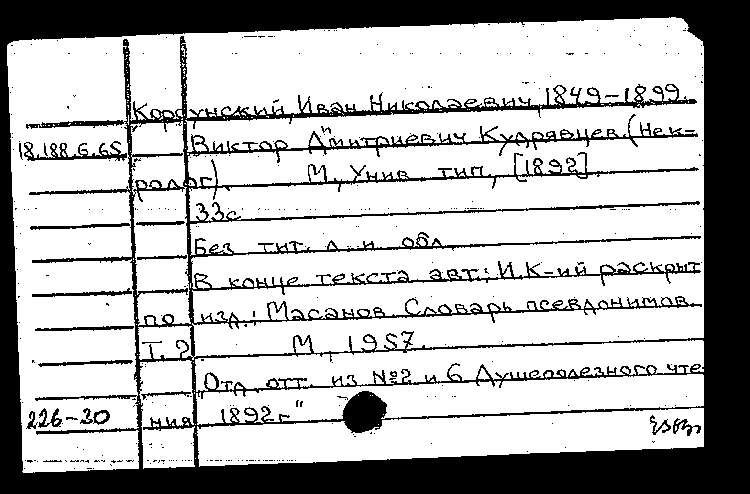 Корсунский, Иван Николаевич, 1849-1899.
18.188.6.65 Виктор Дмитриевич Кудрявцев. (Нек-
ролог). М., Унив. тип., [1892].
33с
Без тит. л. и обл.
В конце текста авт.: И.К-ий раскрыт
по изд.: Масанов. Словарь псевдонимов.
Т. 2 М., 1957.
"Отд. отт. из №2 и 6 Душеполезного чте-
226-30 ния 1892г"